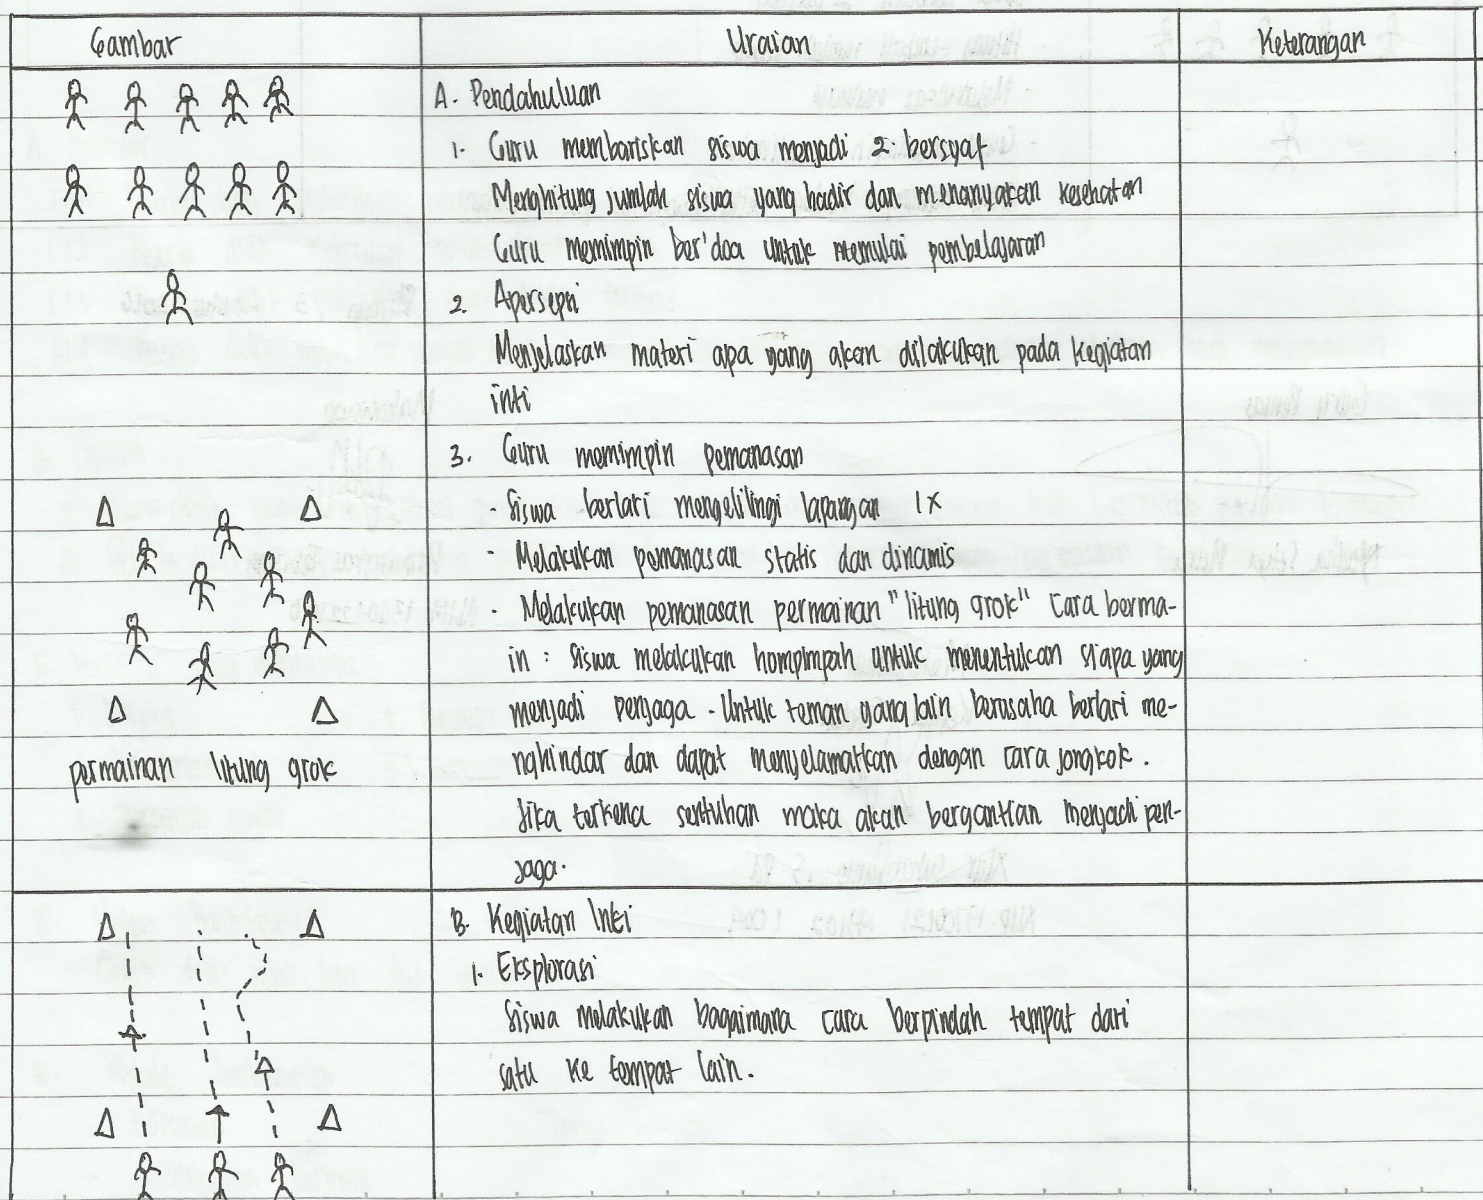 Gambar
Uraian
Keterangan
A. Pendahuluan
1. Guru membariskan siswa menjadi 2 bersyaf
Menghitung jumlah siswa yang hadir dan menanyakan kesehatan
Guru memimpin ber'doa untuk memulai pembelajaran
2. Apersepsi
Menjelaskan materi apa yang akan dilakukan pada kegiatan
inti
3. Guru memimpin pemanasan
- Siswa berlari mengelilingi lapangan 1x
- Melakukan pemanasan statis dan dinamis
- Melakukan pemanasan permainan "litung grok" Cara berma-
in : Siswa melakukan hompimpah untuk menentukan siapa yang
menjadi penjaga. Untuk teman yang lain berusaha berlari me-
nghindar dan dapat menyelamatkan dengan cara jongkok.
Jika terkena sentuhan maka akan bergantian menjadi pen-
jaga.
permainan litung grok
B. Kegiatan Inti
1. Eksplorasi
Siswa melakukan bagaimana cara berpindah tempat dari
satu ke tempat lain.